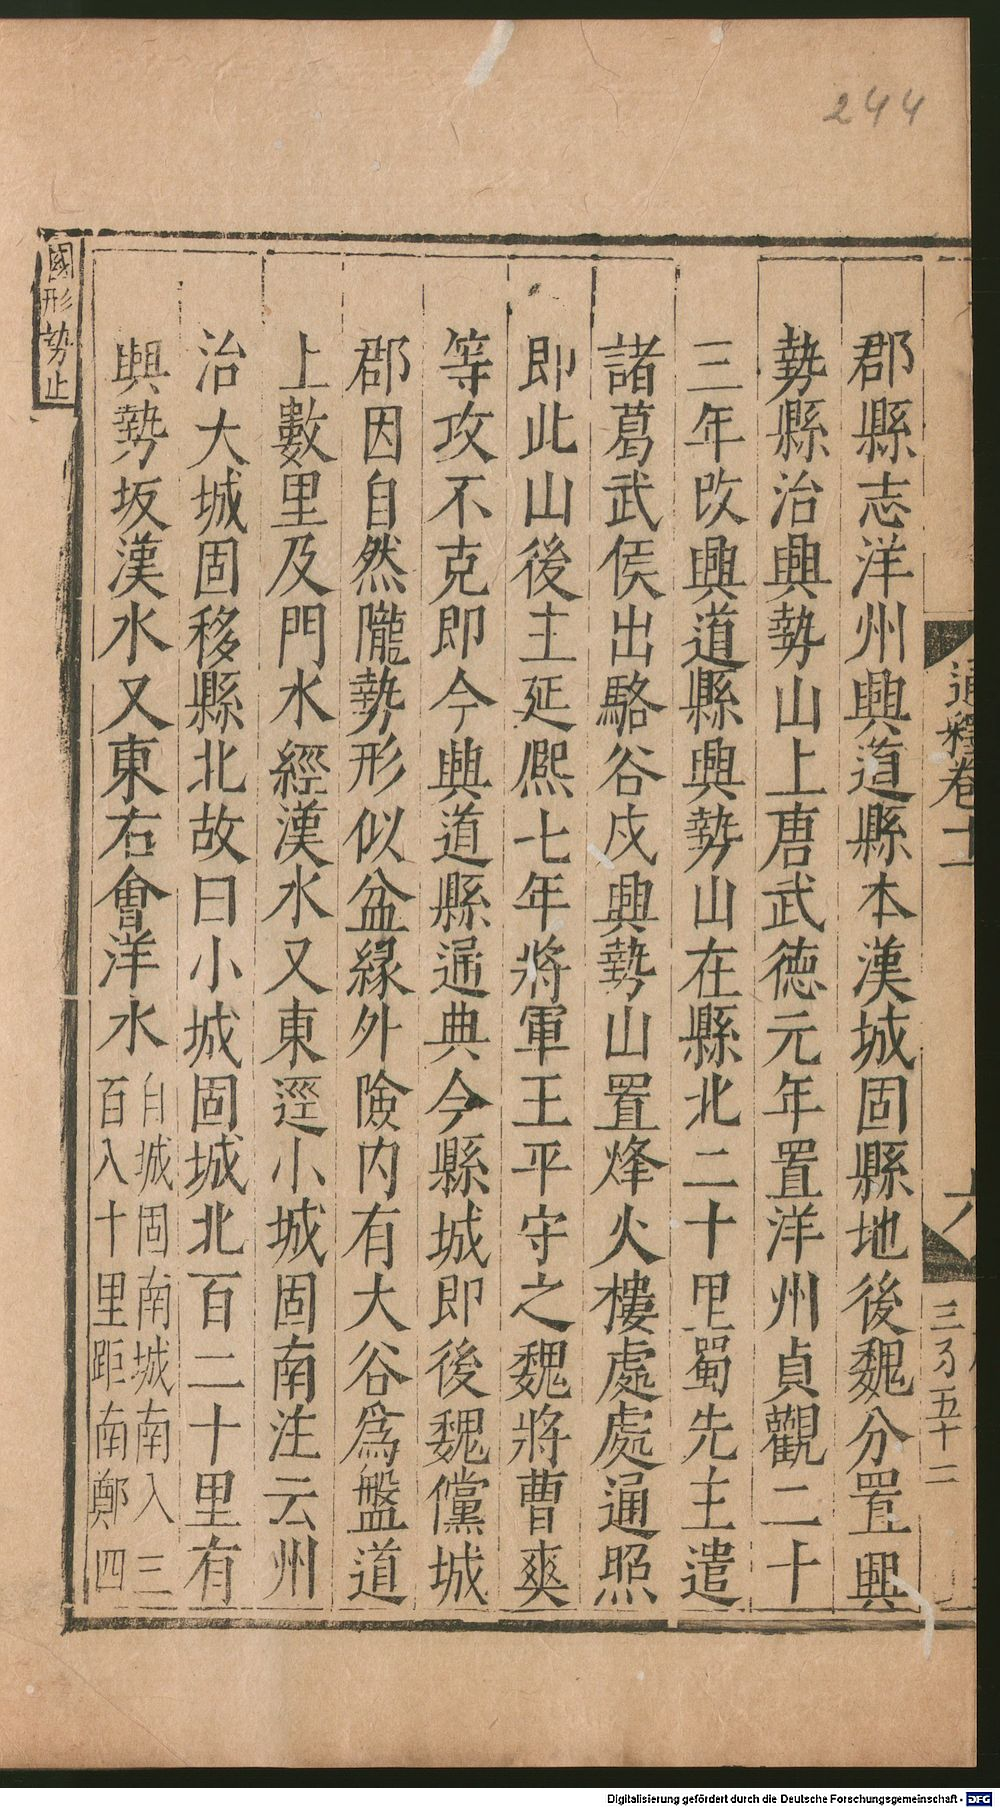 244
郡縣志洋州興道縣本漢城固縣地後魏分置興
勢縣治興勢山上唐武德元年置洋州貞觀二十
三年改興道縣興勢山在縣北二十里蜀先主遣
諸葛武侯出駱谷戍興勢山置烽火樓處處通照
即此山後主延熈七年將軍王平守之魏將曹爽
等攻不克即今興道縣通典今縣城即後魏儻城
郡因自然隴勢形似盆緣外險内有大谷爲盤道
上數里及門水經漢水又東逕小城固南注云州
治大城固移縣北故曰小城固城北百二十里有
興勢坂漢水又東右會洋水
自城固南城南入三
百入十里距南鄭四
國形勢止
通釋卷十
六
Digitalisierung gefördert durch die Deutsche Forschungsgemeinschaft - DFG